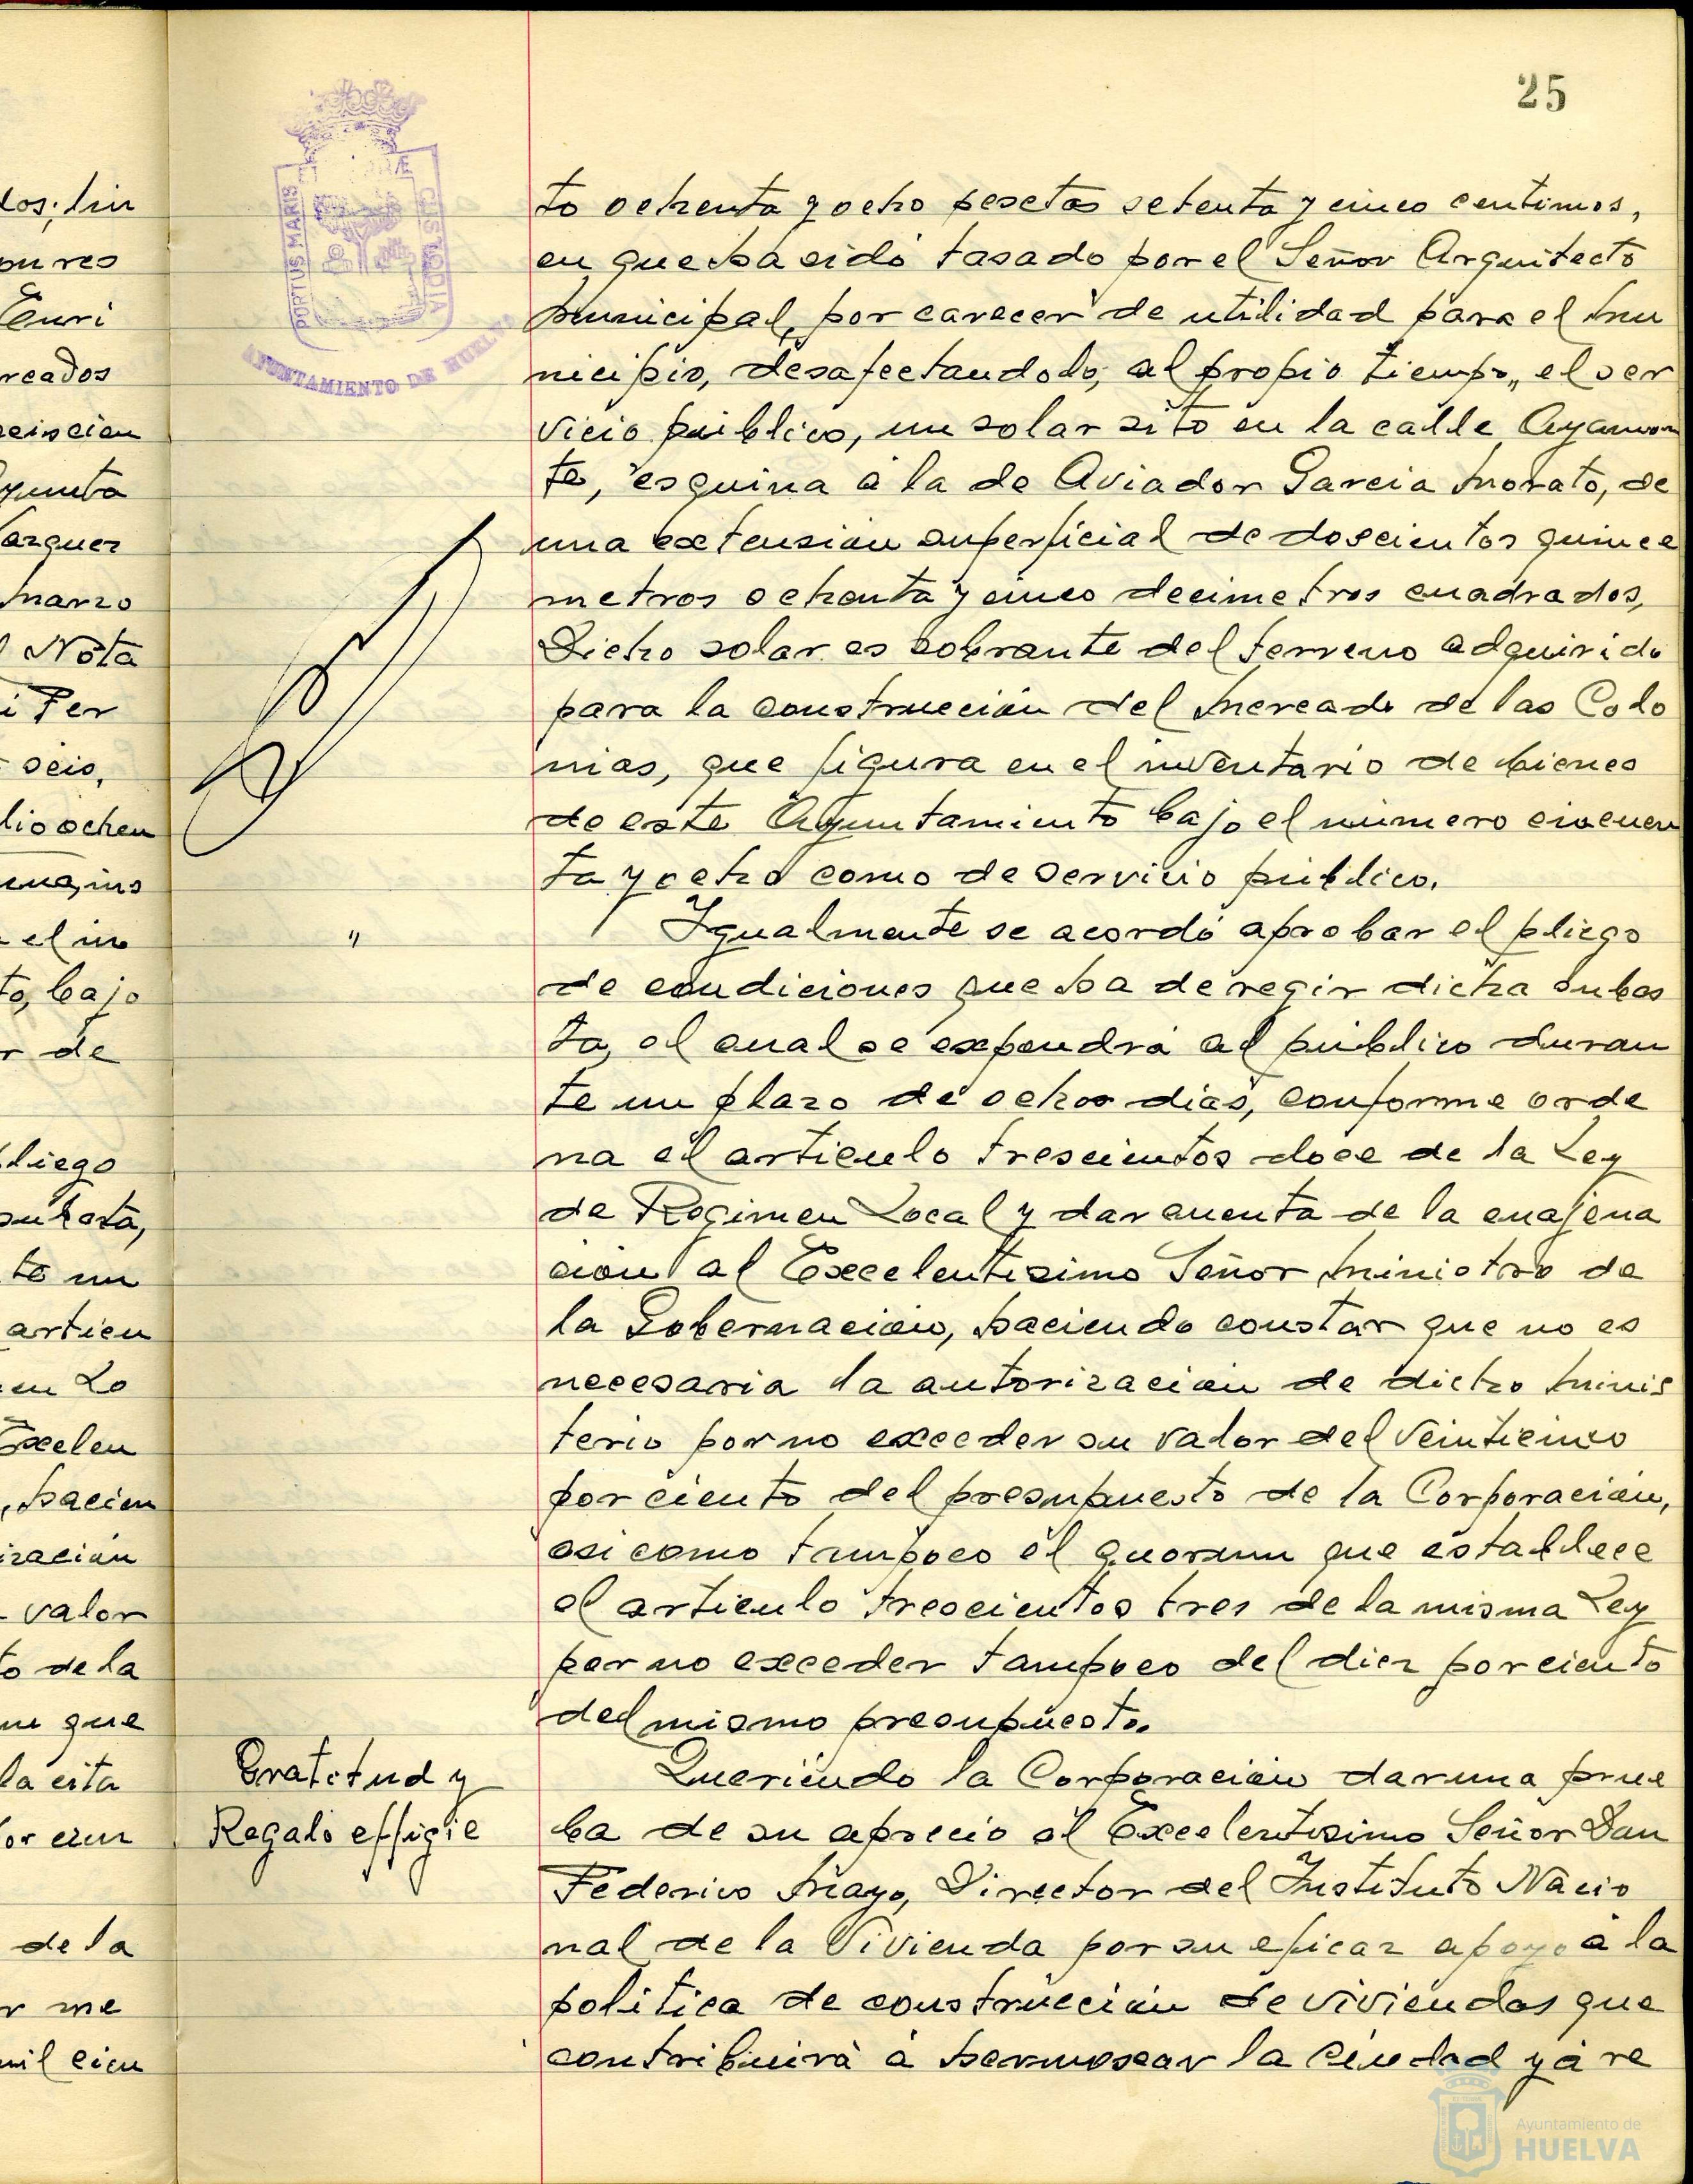 25
PORTUS MARIS
CUSTODIA
AYUNTAMIENTO DE HUELVA
to ochenta y ocho pesetas setenta y cinco centimos,
en que ha sido tasado por el Señor Arquitecto
Municipal, por carecer de utilidad para el Mu
nicipio, desafectandolo, al propio tiempo, el ser
vicio público, un solar sito en la calle Ayamon
te, esquina á la de Aviador Garcia Morato, de
una extensión superficial de doscientos quince
metros ochenta y cinco decimetros cuadrados,
Dicho solar es sobrante del terreno adquirido
para la construcción del Mercado de las Colo
nias, que figura en el inventario de bienes
de este Ayuntamiento bajo el número cincuen
ta y ocho como de servicio público.
" Igualmente se acordó aprobar el pliego
de condiciones que ha de regir dicha subas
ta, el cual se expondrá al público duran
te un plazo de ochos dias, conforme orde
na el articulo trescientos doce de la Ley
de Regimen Local y dar cuenta de la enajena
ción al Excelentisimo Señor Ministro de
la Gobernación, haciendo constar que no es
necesaria la autorización de dicho Minis
terio por no exceder su valor del veinticinco
por ciento del presupuesto de la Corporación,
asi como tampoco el quorum que establece
el articulo trescientos tres de la misma Ley
por no exceder tampoco del diez por ciento
del mismo presupuesto.
Gratitud y
Regalo effigie
Queriendo la Corporación dar una prue
ba de su aprecio al Excelentisimo Señor Don
Federico Mayo, Director del Instituto Nacio
nal de la Vivienda por su eficaz apoyo á la
politica de construcción de viviendas que
contribuirá á hermosear la ciudad y á re
los; lin
Enri
reados
marzo
l Nota
i Fer
seis,
lio ochen
to, bajo
r de
pliego
subasta,
te un
articu
en Lo
Excelen
, hacien
ización
valor
to de la
que
la cita
de la
r me
mil cien
Ayuntamiento de
HUELVA